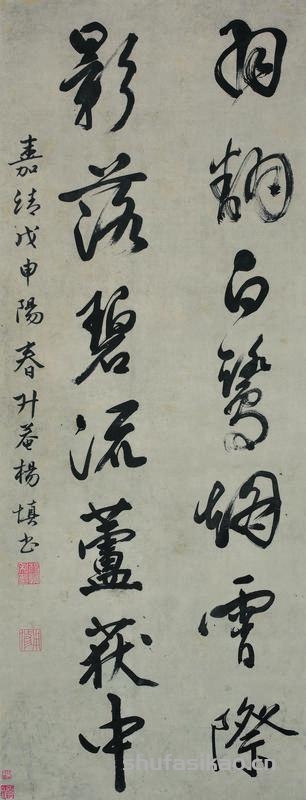 羽翻白鷺烟霄際
影落碧流蘆荻中
嘉靖戊申陽春升菴楊慎書